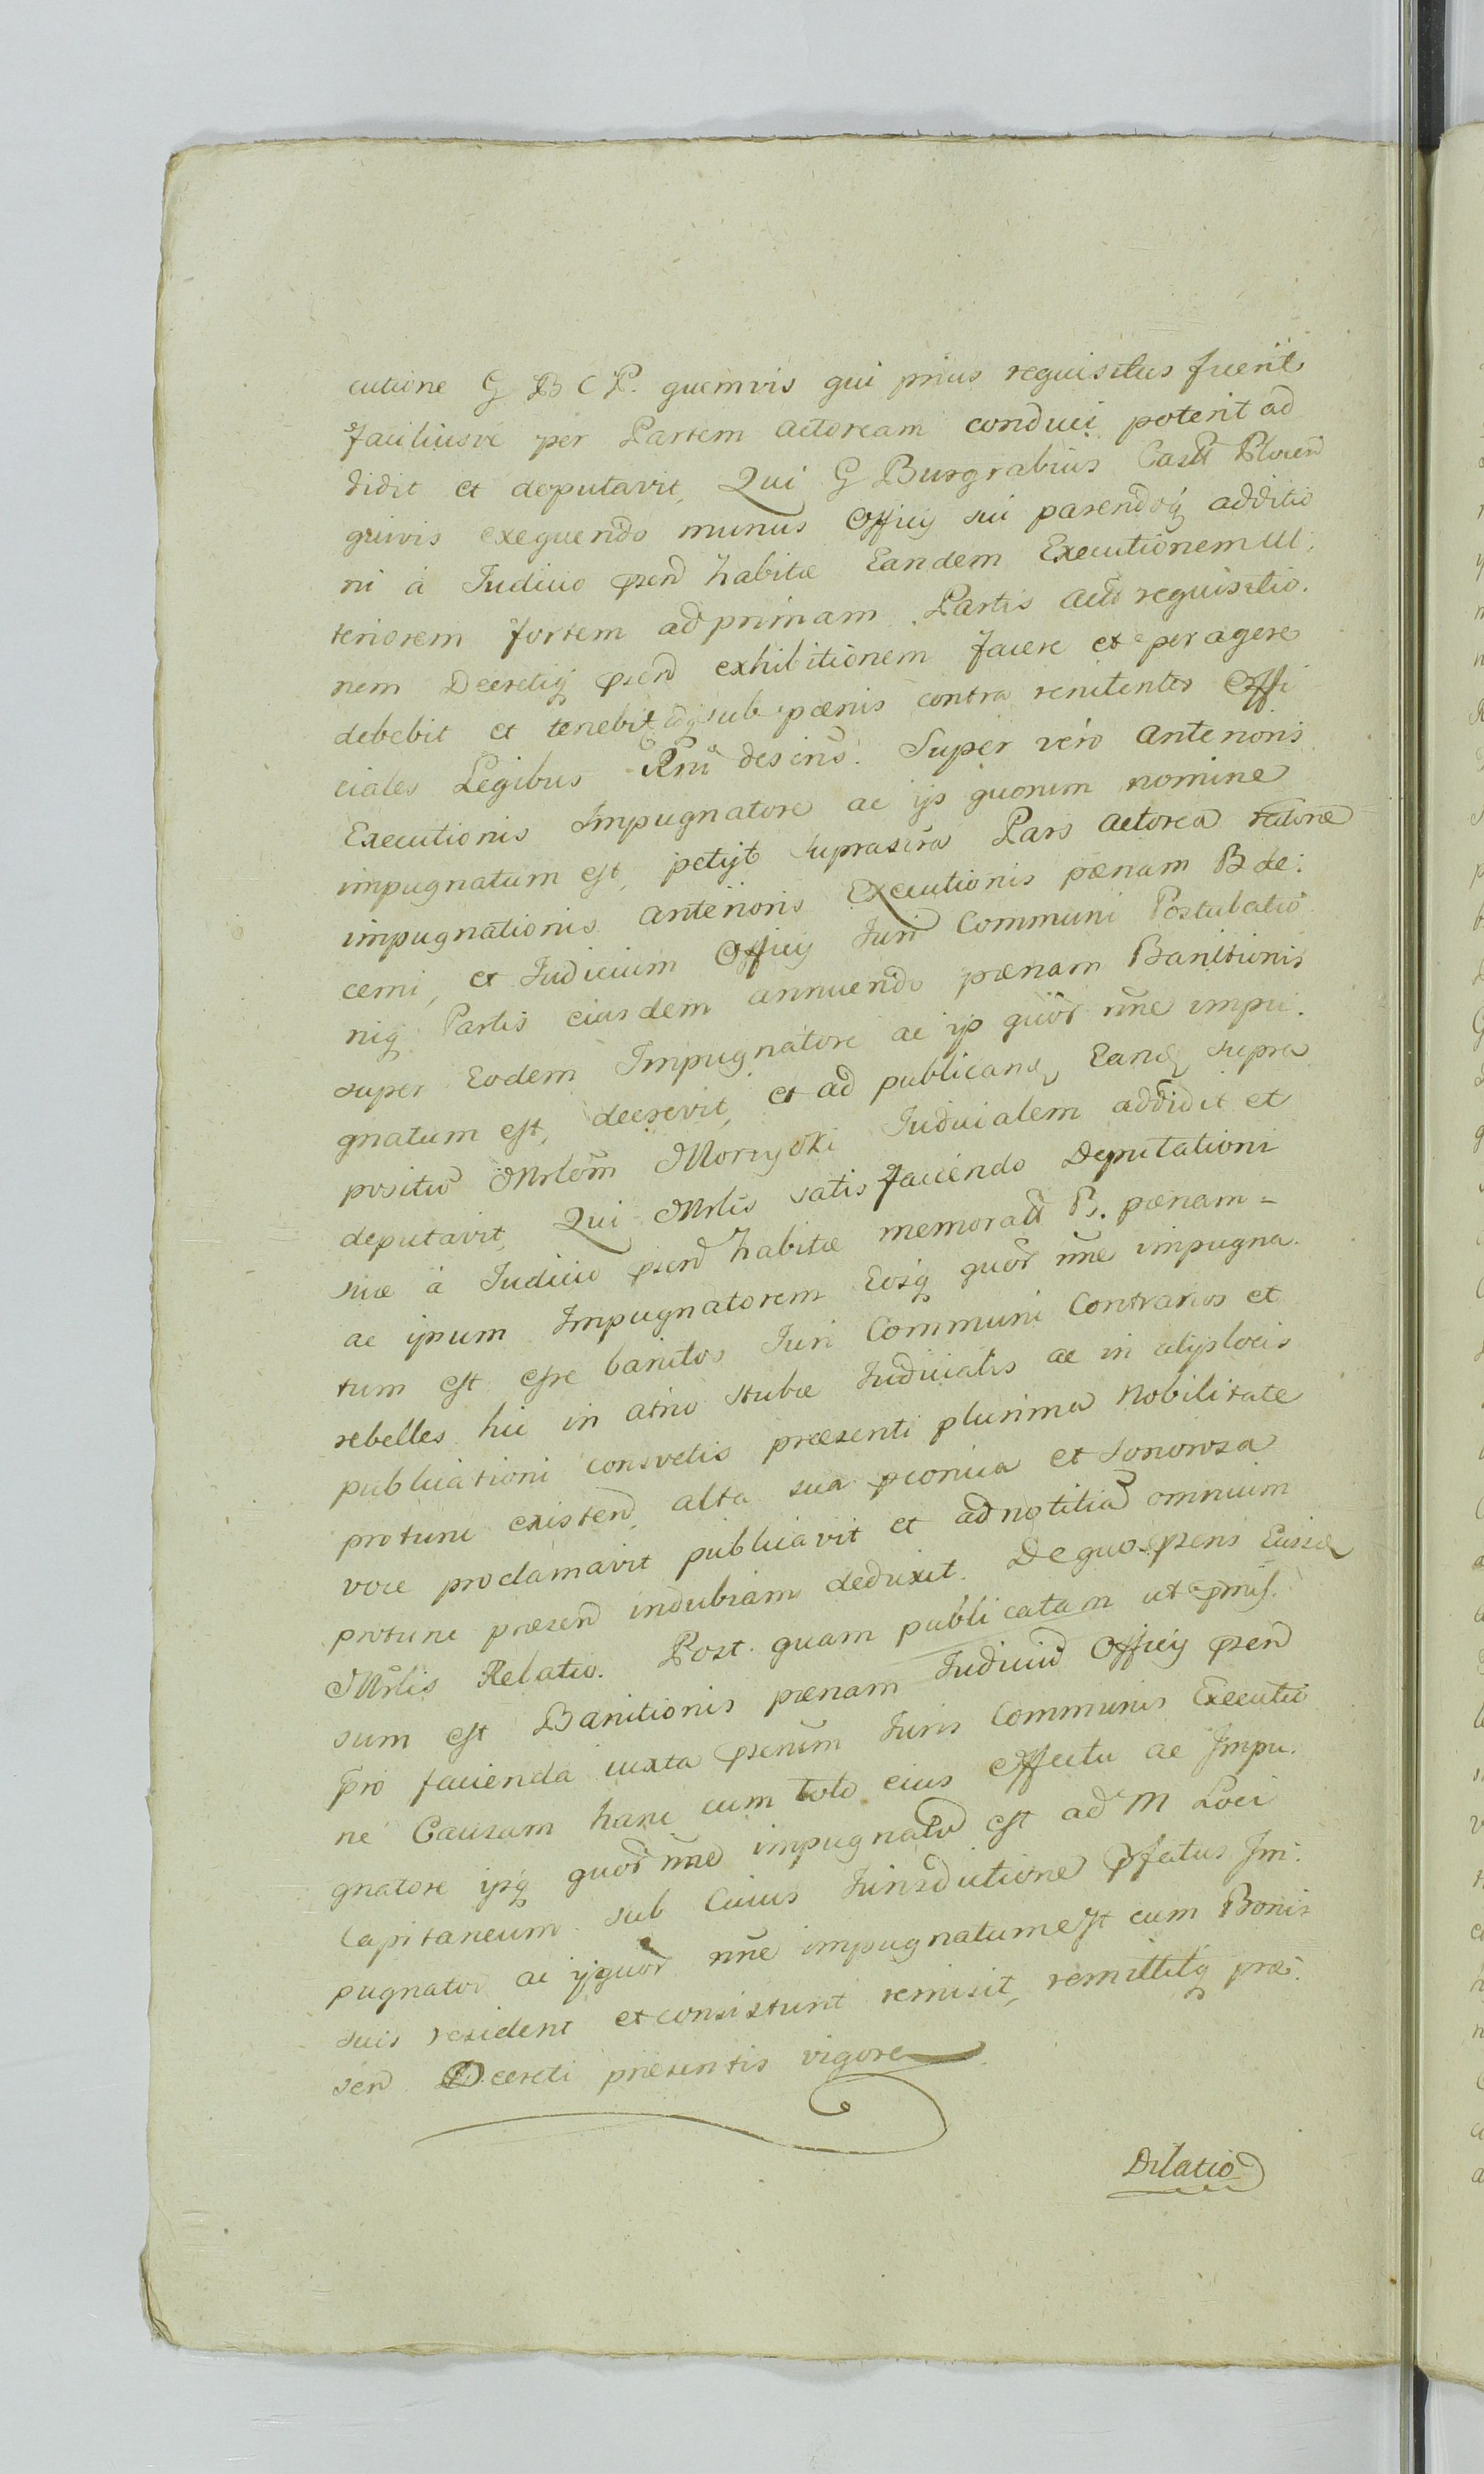 cutione G B C P. quemvis qui prius requisitus fuerit
faciliusve per Partem Actoream conduci poterit ad
didit et deputavit, Qui G Burgrabius Castr
quivis exequendo munus Officij sui parendoq additio
ni à Judicio psen habitæ Eandem Executionem Ul,
teriorem fortem ad primam Partis Acto requisitio.
nem Decretiq psen exhibitionem facere et peragere
debebit et tenebit sub pœnis contra renitentes Offi
ciales Legibus Rni descris. Super vero Anterioris
Executionis Impugnatore ac ijs quorum nomine
impugnatum est, petijt suprascra Pars Actorea ratione
impugnationis Anterioris Executionis pœnam B de:
cerni, et Judicium Officij Juri Communi Postulatio
niq Partis eiusdem annuendo pœnam Banitionis
super Eodem Impugnatore ac ijs quor nne impu.
gnatum est, decrevit, et ad publicand Eand supra
positu Mrlem Morzycki Judicialem addidit et
deputavit, Qui Mrlis satisfaciendo Deputationi
suæ à Judicio psen habitæ memorat B. pœnam =
ac ipsum Impugnatorem Eosq quor nne impugna.
tum est esse banitos Juri Communi Contrarios et
rebelles hic in atrio stubæ Judicialis ac in alijs locis
publicationi consvetis præsenti plurima Nobilitate
protunc existen, alta sua pconica et Sonorosa
voce proclamavit publicavit et ad notitia omnium
protunc præsen indubiam deduxit. De quo psens Eiusd
Mrlis Relatio. Post quam publicatam ut pmis.
sum est Banitionis pœnam Judiciu Officij psen
pro facienda iuxta pscrium Juris Communis Executio
ne Causam hanc cum toto eius effectu ac Impu.
gnatore ijsq quor nne impugnatu est ad M Loci
Capitaneum sub Cuius Jurisdictione pfatus Im:
pugnator ac ij quor nne impugnatum est cum Bonis
suis resident et consistunt remisit, remittitq præ.
sen Decreti præsentis vigore
Dilatio